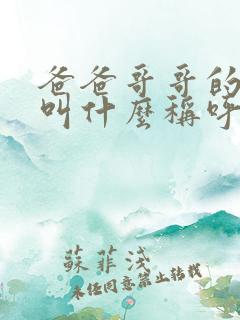 爸爸哥哥的
叫什麼稱呼
蘇菲淺
未经同意禁止转载